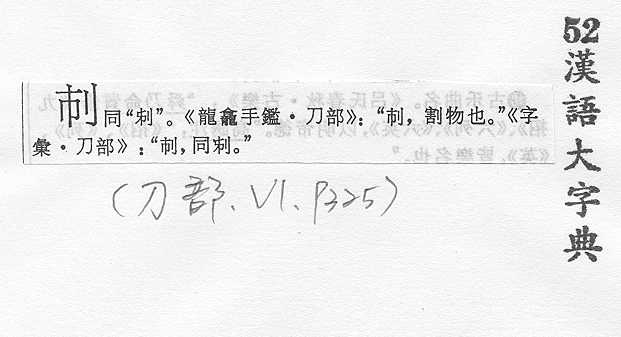 同“刺”。《龍龕手鑑·刀部》：“，割物也。”《字
彙·刀部》：“，同刺。”
(刀部、VI、P325)
52漢語大字典